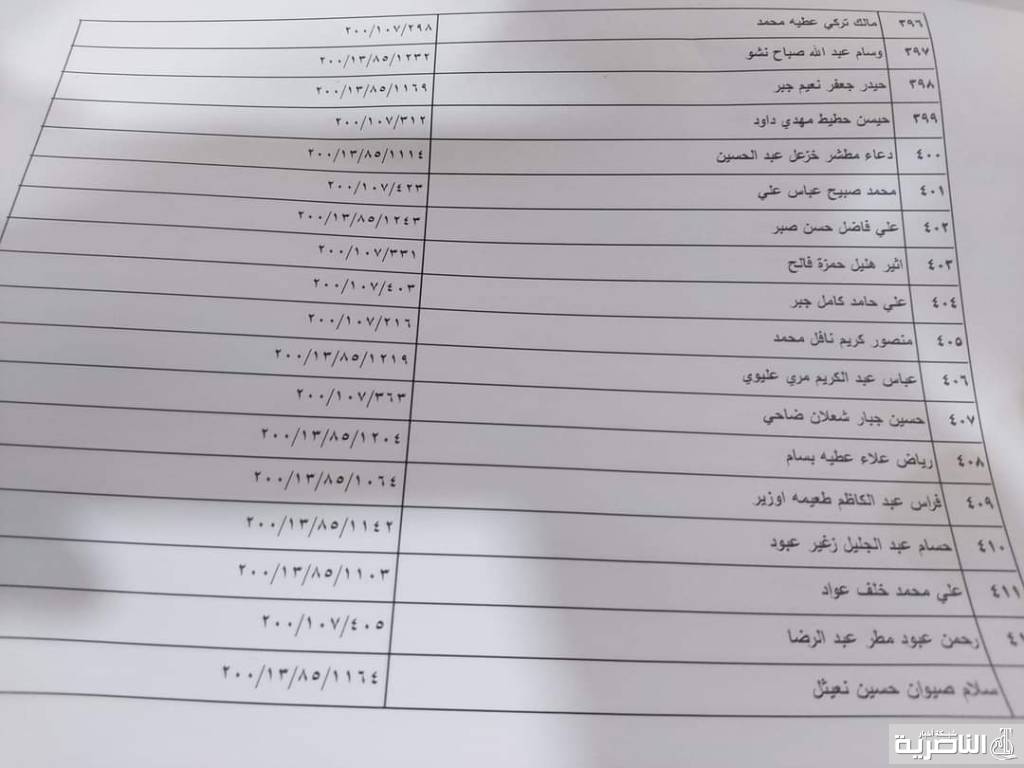 ٣٩٦ مالك تركي عطيه محمد ٢٠٠/١٠٧/٢٩٨
٣٩٧ وسام عبد الله صباح نشو ٢٠٠/١٣/٨٥/١٢٣٢
٣٩٨ حيدر جعفر نعيم جبر ٢٠٠/١٣/٨٥/١١٦٩
٣٩٩ حيسن حطيط مهدي داود ٢٠٠/١٠٧/٣١٢
٤٠٠ دعاء مطشر خزعل عبد الحسين ٢٠٠/١٣/٨٥/١١١٤
٤٠١ محمد صبيح عباس علي ٢٠٠/١٠٧/٤٢٣
٤٠٢ علي فاضل حسن صبر ٢٠٠/١٣/٨٥/١٢٤٣
٤٠٣ اثير هليل حمزة فالح ٢٠٠/١٠٧/٣٣١
٤٠٤ علي حامد كامل جبر ٢٠٠/١٠٧/٤٠٣
٤٠٥ منصور كريم نافل محمد ٢٠٠/١٠٧/٢١٦
٤٠٦ عباس عبد الكريم مري عليوي ٢٠٠/١٣/٨٥/١٢١٩
٤٠٧ حسين جبار شعلان ضاحي ٢٠٠/١٠٧/٣٦٣
٤٠٨ رياض علاء عطيه بسام ٢٠٠/١٣/٨٥/١٢٠٤
٤٠٩ فراس عبد الكاظم طعيمه اوزير ٢٠٠/١٣/٨٥/١٠٦٤
٤١٠ حسام عبد الجليل زغير عبود ٢٠٠/١٣/٨٥/١١٤٢
٤١١ علي محمد خلف عواد ٢٠٠/١٣/٨٥/١١٠٣
رحمن عبود مطر عبد الرضا ٢٠٠/١٠٧/٤٠٥
سلام صيوان حسين نعيثل ٢٠٠/١٣/٨٥/١١٦٤
شبكة أخبار
الناصرية